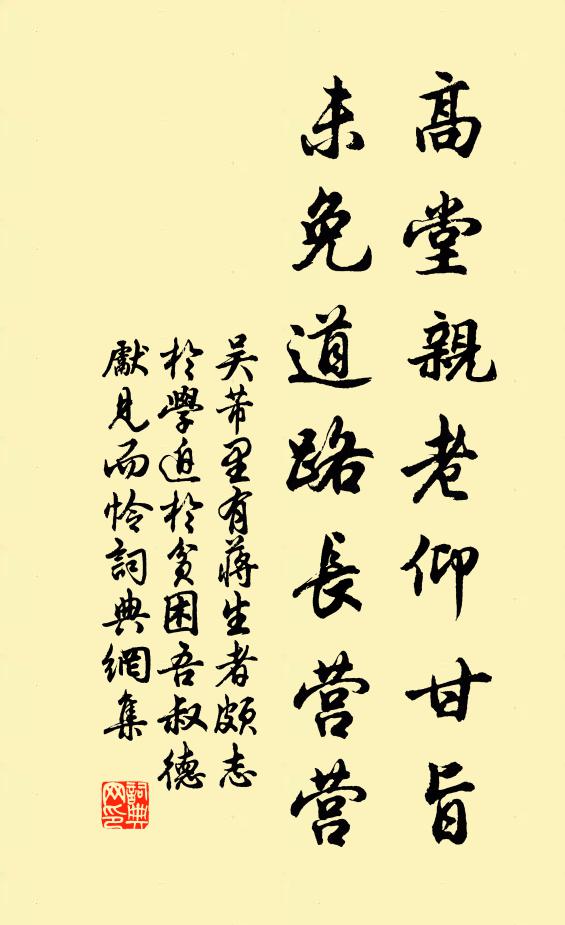 高堂親老仰甘旨
未免道路長营营
吴芾里有蒋生者頗志
於學迫於貧困吾叔德
獻見而怜詞典網集
詞典
网印